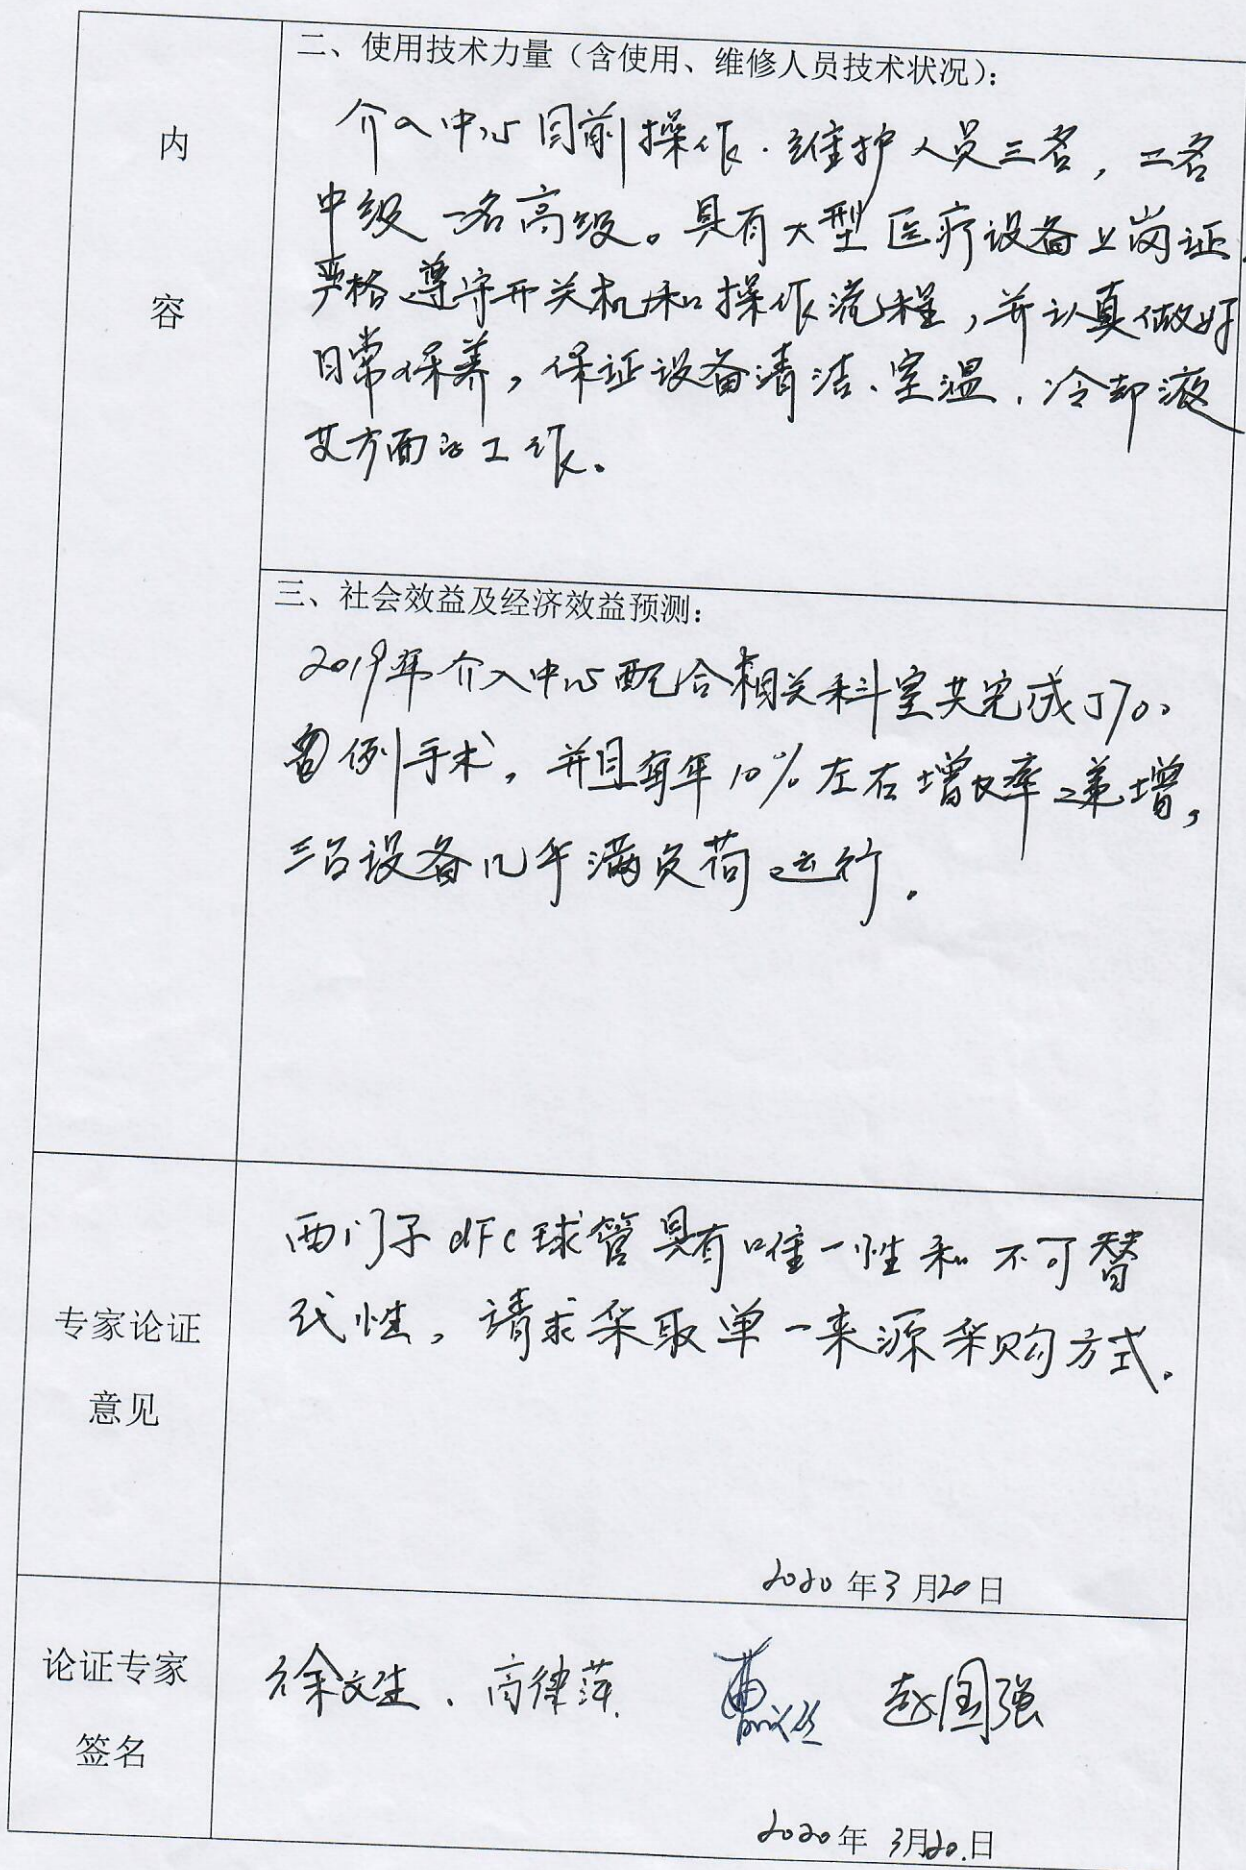 内
容
二、使用技术力量（含使用、维修人员技术状况）：
介入中心目前操作.维护人员三名，二名
中级 一名高级。具有大型医疗设备上岗证.
严格遵守开关机和操作流程，并认真做好
日常保养，保证设备清洁、室温、冷却液
等方面的工作。
三、社会效益及经济效益预测：
2019年介入中心配合相关科室共完成5700
例手术，并且每年10%左右增长率递增，
三台设备几乎满负荷运行.
专家论证
意见
西门子dFc球管具有唯一性和不可替
代性，请求采取单一来源采购方式.
2020年3月20日
论证专家
签名
徐文生、高律萍. 曹 赵国强
2020年 3月20.日